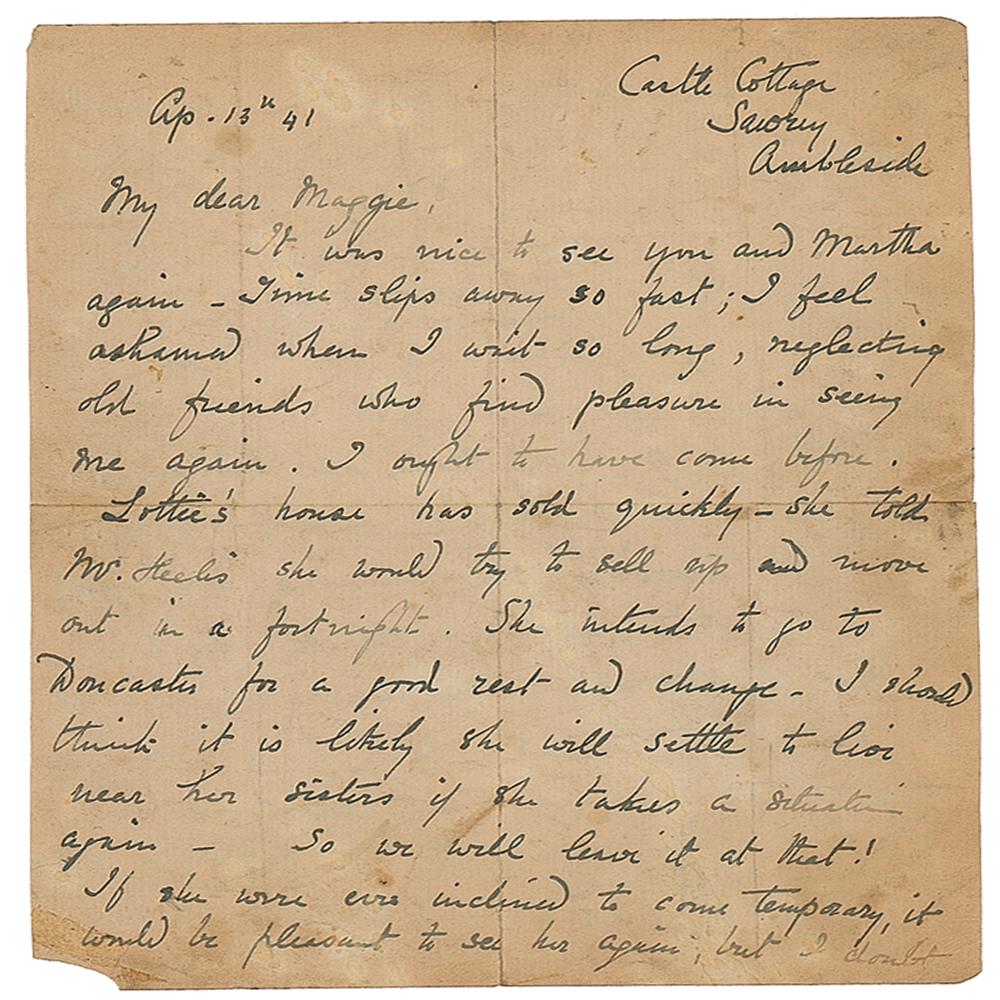 Castle Cottage
Ap. 13th 41
Sawrey
Ambleside
My dear Maggie,
It was nice to see you and Martha
again - Time slips away so fast; I feel
ashamed when I wait so long, neglecting
old friends who find pleasure in seeing
me again. I ought to have come before.
Lottie's house has sold quickly - she told
Mr. Heelis she would try to sell up and move
out in a fortnight. She intends to go to
Doncaster for a good rest and change - I should
think it is likely she will settle to live
near her sisters if she takes a situation
again - So we will leave it at that!
If she were ever inclined to come temporary, it
would be pleasant to see her again; but I doubt